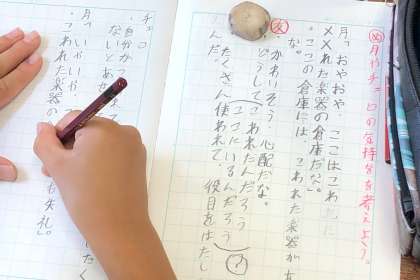 め 月やチェロの気持ちを考えよう。
月「おやおや、ここはこわ
れた楽器の倉庫だな。」
・ここの倉庫には、こわれた楽器が
な。
友
・かわいそう。心配だな。
・どうしてこわれたんだろう
ここにいるんだろう
・たくさん使われて、役目をはたし
んだ。
チェロ
・自分が
ないとあせ
月「いやいや、
・こわれた楽器の も失礼。」